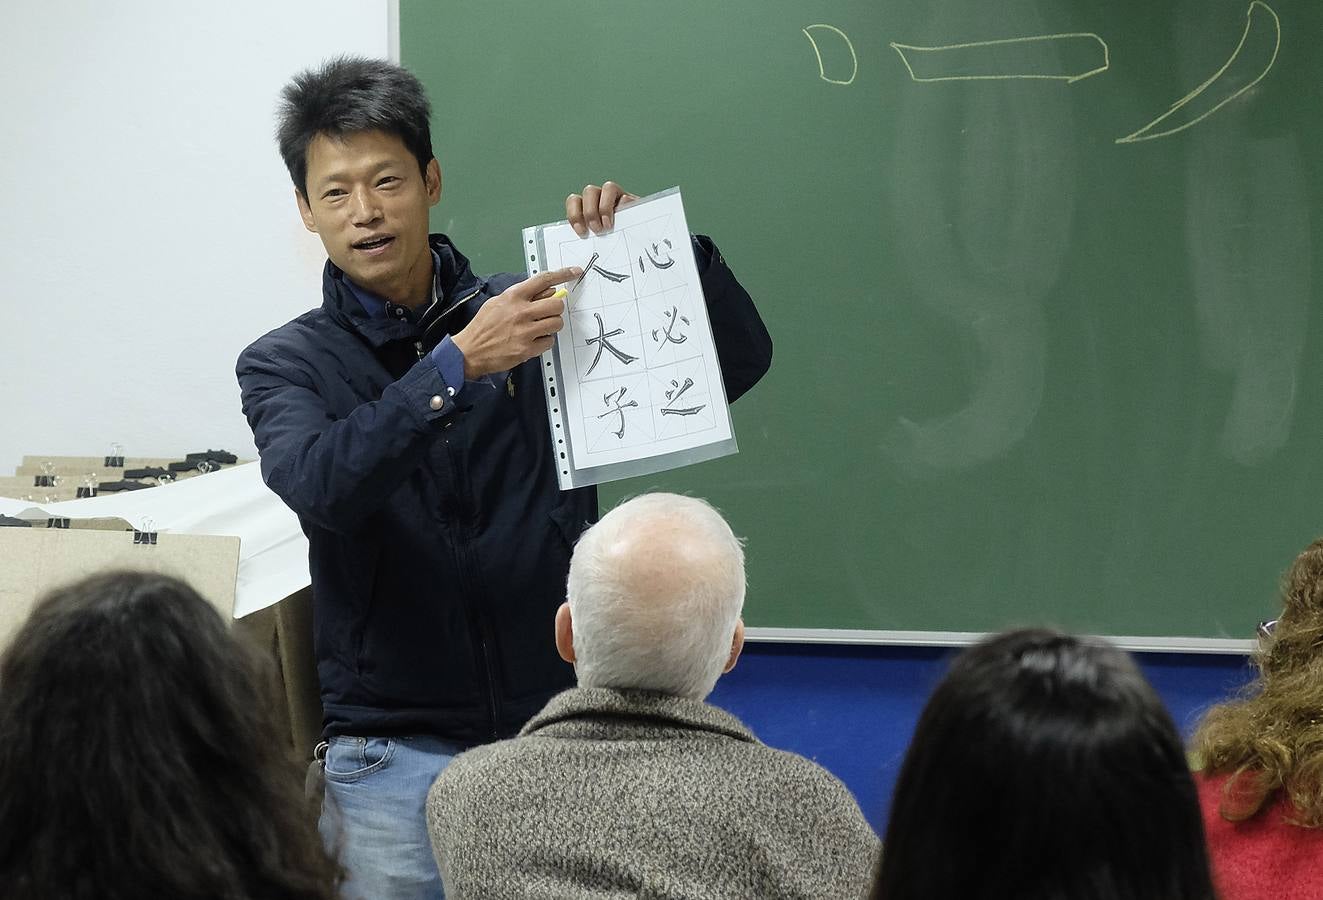 人心
大必
子之